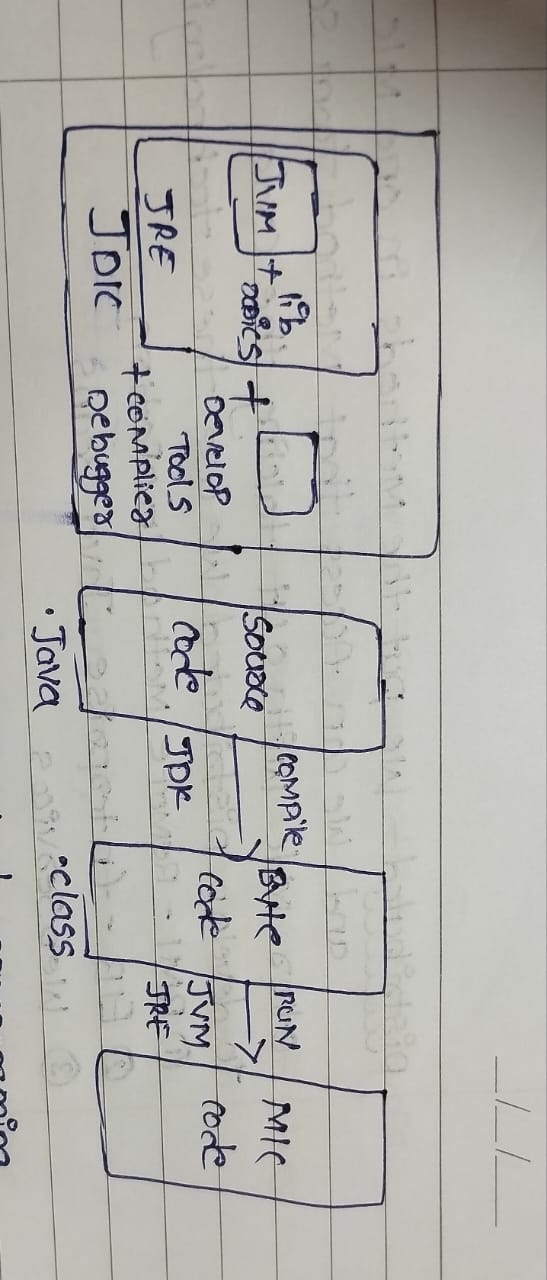 JVM
+ lib
apics
+
JRE
JDK
Develop
Tools
+ complier
Debugger
Source
code
.Java
compile
JDK
Byte
code
.class
RUN
JVM
JRE
M/C
code